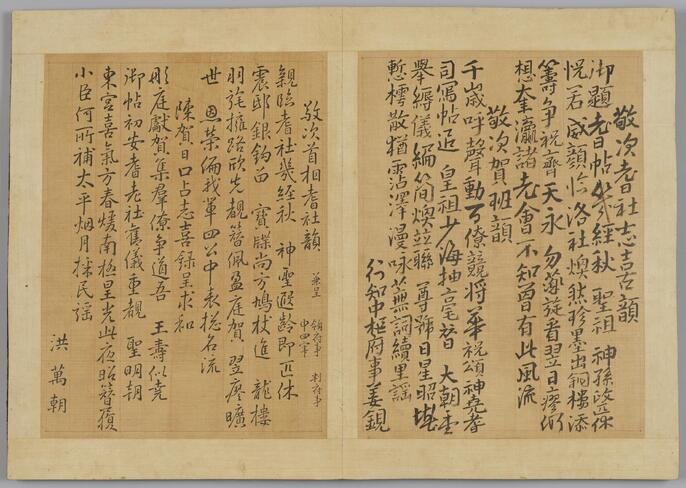 敬次耆社志喜韻
御題耆帖幾經秋 聖祖 神孫啓正休
怳若威顏臨洛社煥然珍墨出銅樓添
籌争祝齊天永勿藥旋看翌日瘳仰
想奎瀛諸老會不知曾有此風流
敬次賀班韻
千歲呼聲動百僚競將華祝頌神堯耆
司寫帖追 皇祖少海抽毫替 大朝盛
舉縟儀編簡煥並聯 尊號日星昭堪
慙樗散猶霑澤漫咏蕪詞續里謠
行知中樞府事姜鋧
敬次首相耆社韻 兼呈 領府事 判府事 中四宰
親臨耆社幾經秋 神聖遐齡即匹休
震邸銀鉤留 寶牒尚方鳩杖進 龍樓
羽旄擁路欣先覩簪佩盈庭賀 翌瘳曠
世 恩榮偏我輩四公中表摠名流
陳賀日口占志喜錄呈求和
彤庭獻賀集羣僚争道吾 王壽似堯
御帖初安耆老社舊儀重覩 聖明朝
東宮喜氣方春煖南極星光此夜昭簪履
小臣何所補太平烟月採民謠
洪萬朝